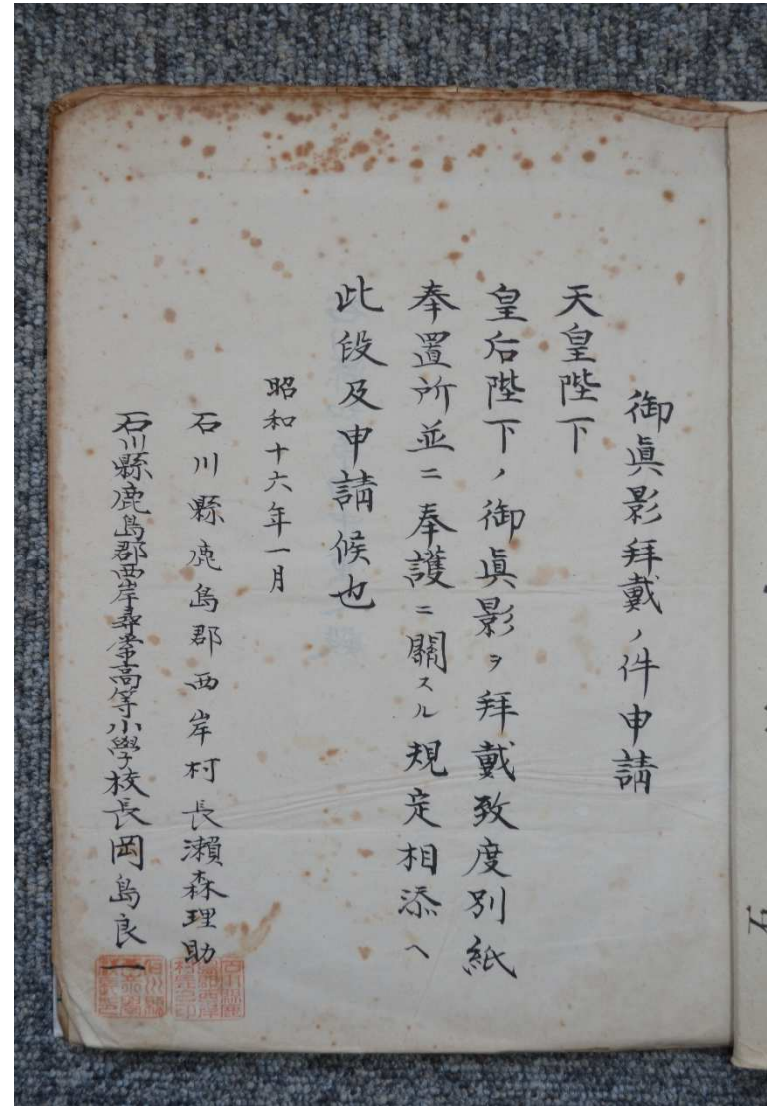 御眞影拜戴ノ件申請
天皇陛下
皇后陛下ノ御眞影ヲ拜戴致度別紙
奉置所並ニ奉護ニ關スル規定相添ヘ
此段及申請候也
昭和十六年一月
石川縣鹿島郡西岸村長瀬森理助
石川縣鹿島郡西岸尋常高等小學校長岡島良一
石